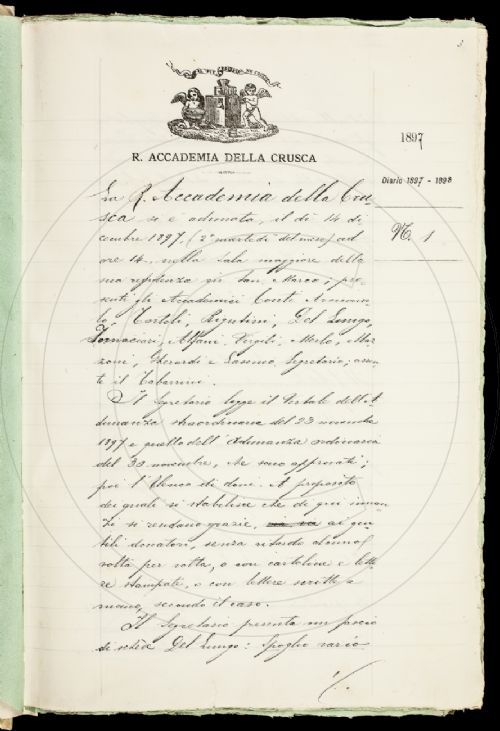 3
R. ACCADEMIA DELLA CRUSCA
1897
Diario 1897 - 1898
N. 1
La R. Accademia della Cru-
sca si è adunata, il dì 14 de-
cembre 1897, (2° martedì del mese) ad
ore 14, nella sala maggiore della
sua residenza in San Marco; pre-
senti gli Accademici Conti Arciconso-
lo, Tortoli, Rigutini, Del Lungo,
Tornaciari, Alfani, Vergili, Merlo, Maz-
zoni, Gherardi e Segretario; assen-
te il Tabarrini.
Il Segretario legge il verbale dell'A-
dunanza straordinaria del 23 novembre
1897 e quello dell'Adunanza ordinaria
del 30 novembre, che sono approvati;
poi l'elenco di doni. A proposito
dei quali si stabilisce che di qui innan-
zi si rendano grazie, ai gen-
tili donatori, senza ritardo alcuno,
volta per volta, o con cartoline e lette-
re stampate, o con lettere scritte a
mano, secondo il caso.
Il Segretario presenta un pacco
di schede Del Lungo: Spoglio vario